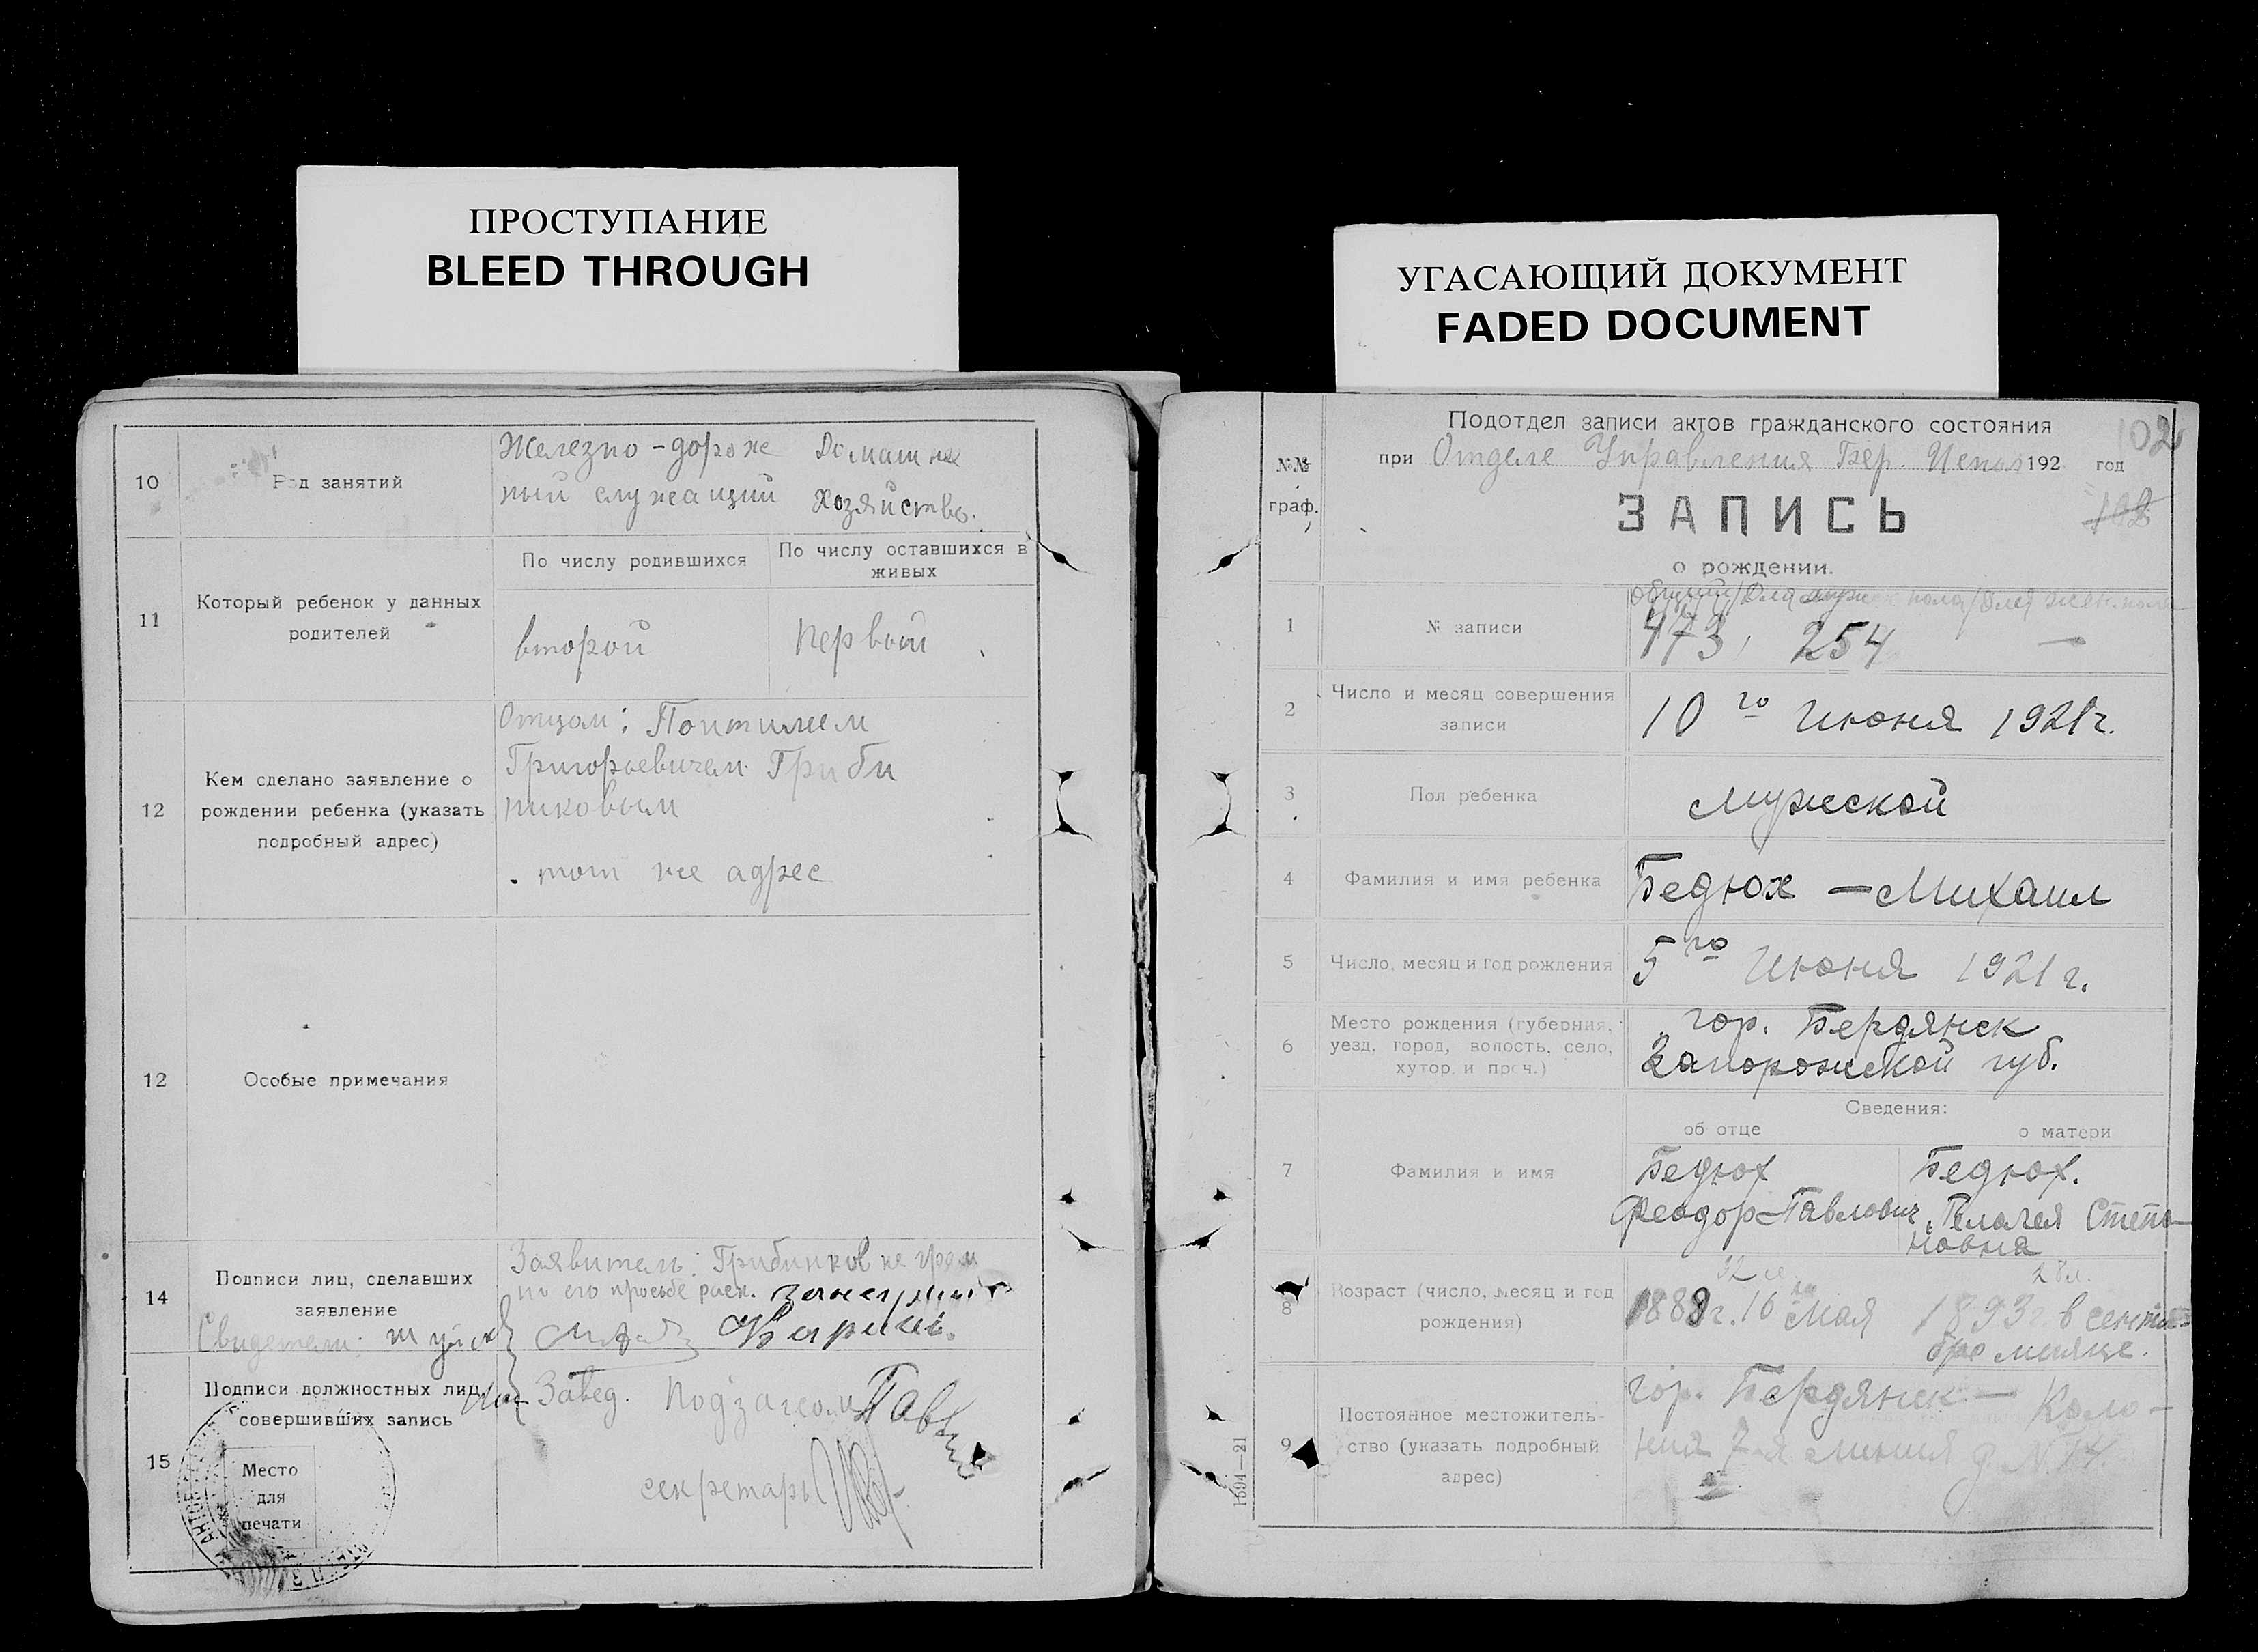 ПРОСТУПАНИЕ
BLEED THROUGH
10
Род занятий
Железно-дорож
ный служащий
Домашнее
хозяйство.
11
Который ребенок у данных
родителей
По числу родившихся
По числу оставшихся в
живых
второй
первый
12
Кем сделано заявление о
рождении ребенка (указать
подробный адрес)
Отцом:
Григорьевичем Гриби
никовым
тот же адрес
12
Особые примечания
14
Подписи лиц, сделавших
заявление
Заявитель: Грибиников не грам
по его просьбе расп.
Свидетели:
15
Подписи должностных лиц,
совершивших запись
Место
для
печати
Завед. Подзагсом
секретарь
УГАСАЮЩИЙ ДОКУМЕНТ
FADED DOCUMENT
102
Подотдел записи актов гражданского состояния
при Отделе Управления Бер. 192 год
№№
граф.
ЗАПИСЬ
о рождении.
общий/для мужск пола/для женск. пола
1
№ записи
473, 254 —
2
Число и месяц совершения
записи
10го июня 1921г.
3
Пол ребенка
мужской
4
Фамилия и имя ребенка
Бедюх — Михаил
5
Число, месяц и год рождения
5го июня 1921 г.
6
Место рождения (губерния,
уезд, город, волость, село,
хутор, и проч.)
гор. Бердянск
Запорожской губ.
Сведения:
об отце
о матери
7
Фамилия и имя
Бедюх
Феодор Павлович
Бедюх.
Пелагея Степа-
новна
8
Возраст (число, месяц и год
рождения)
32
1889г. 16го мая
28л.
1893г. в сентя-
бре месяце.
9
Постоянное местожитель-
ство (указать подробный
адрес)
гор. Бердянск — Коло-
ния 7-я линия д. №
1594—21